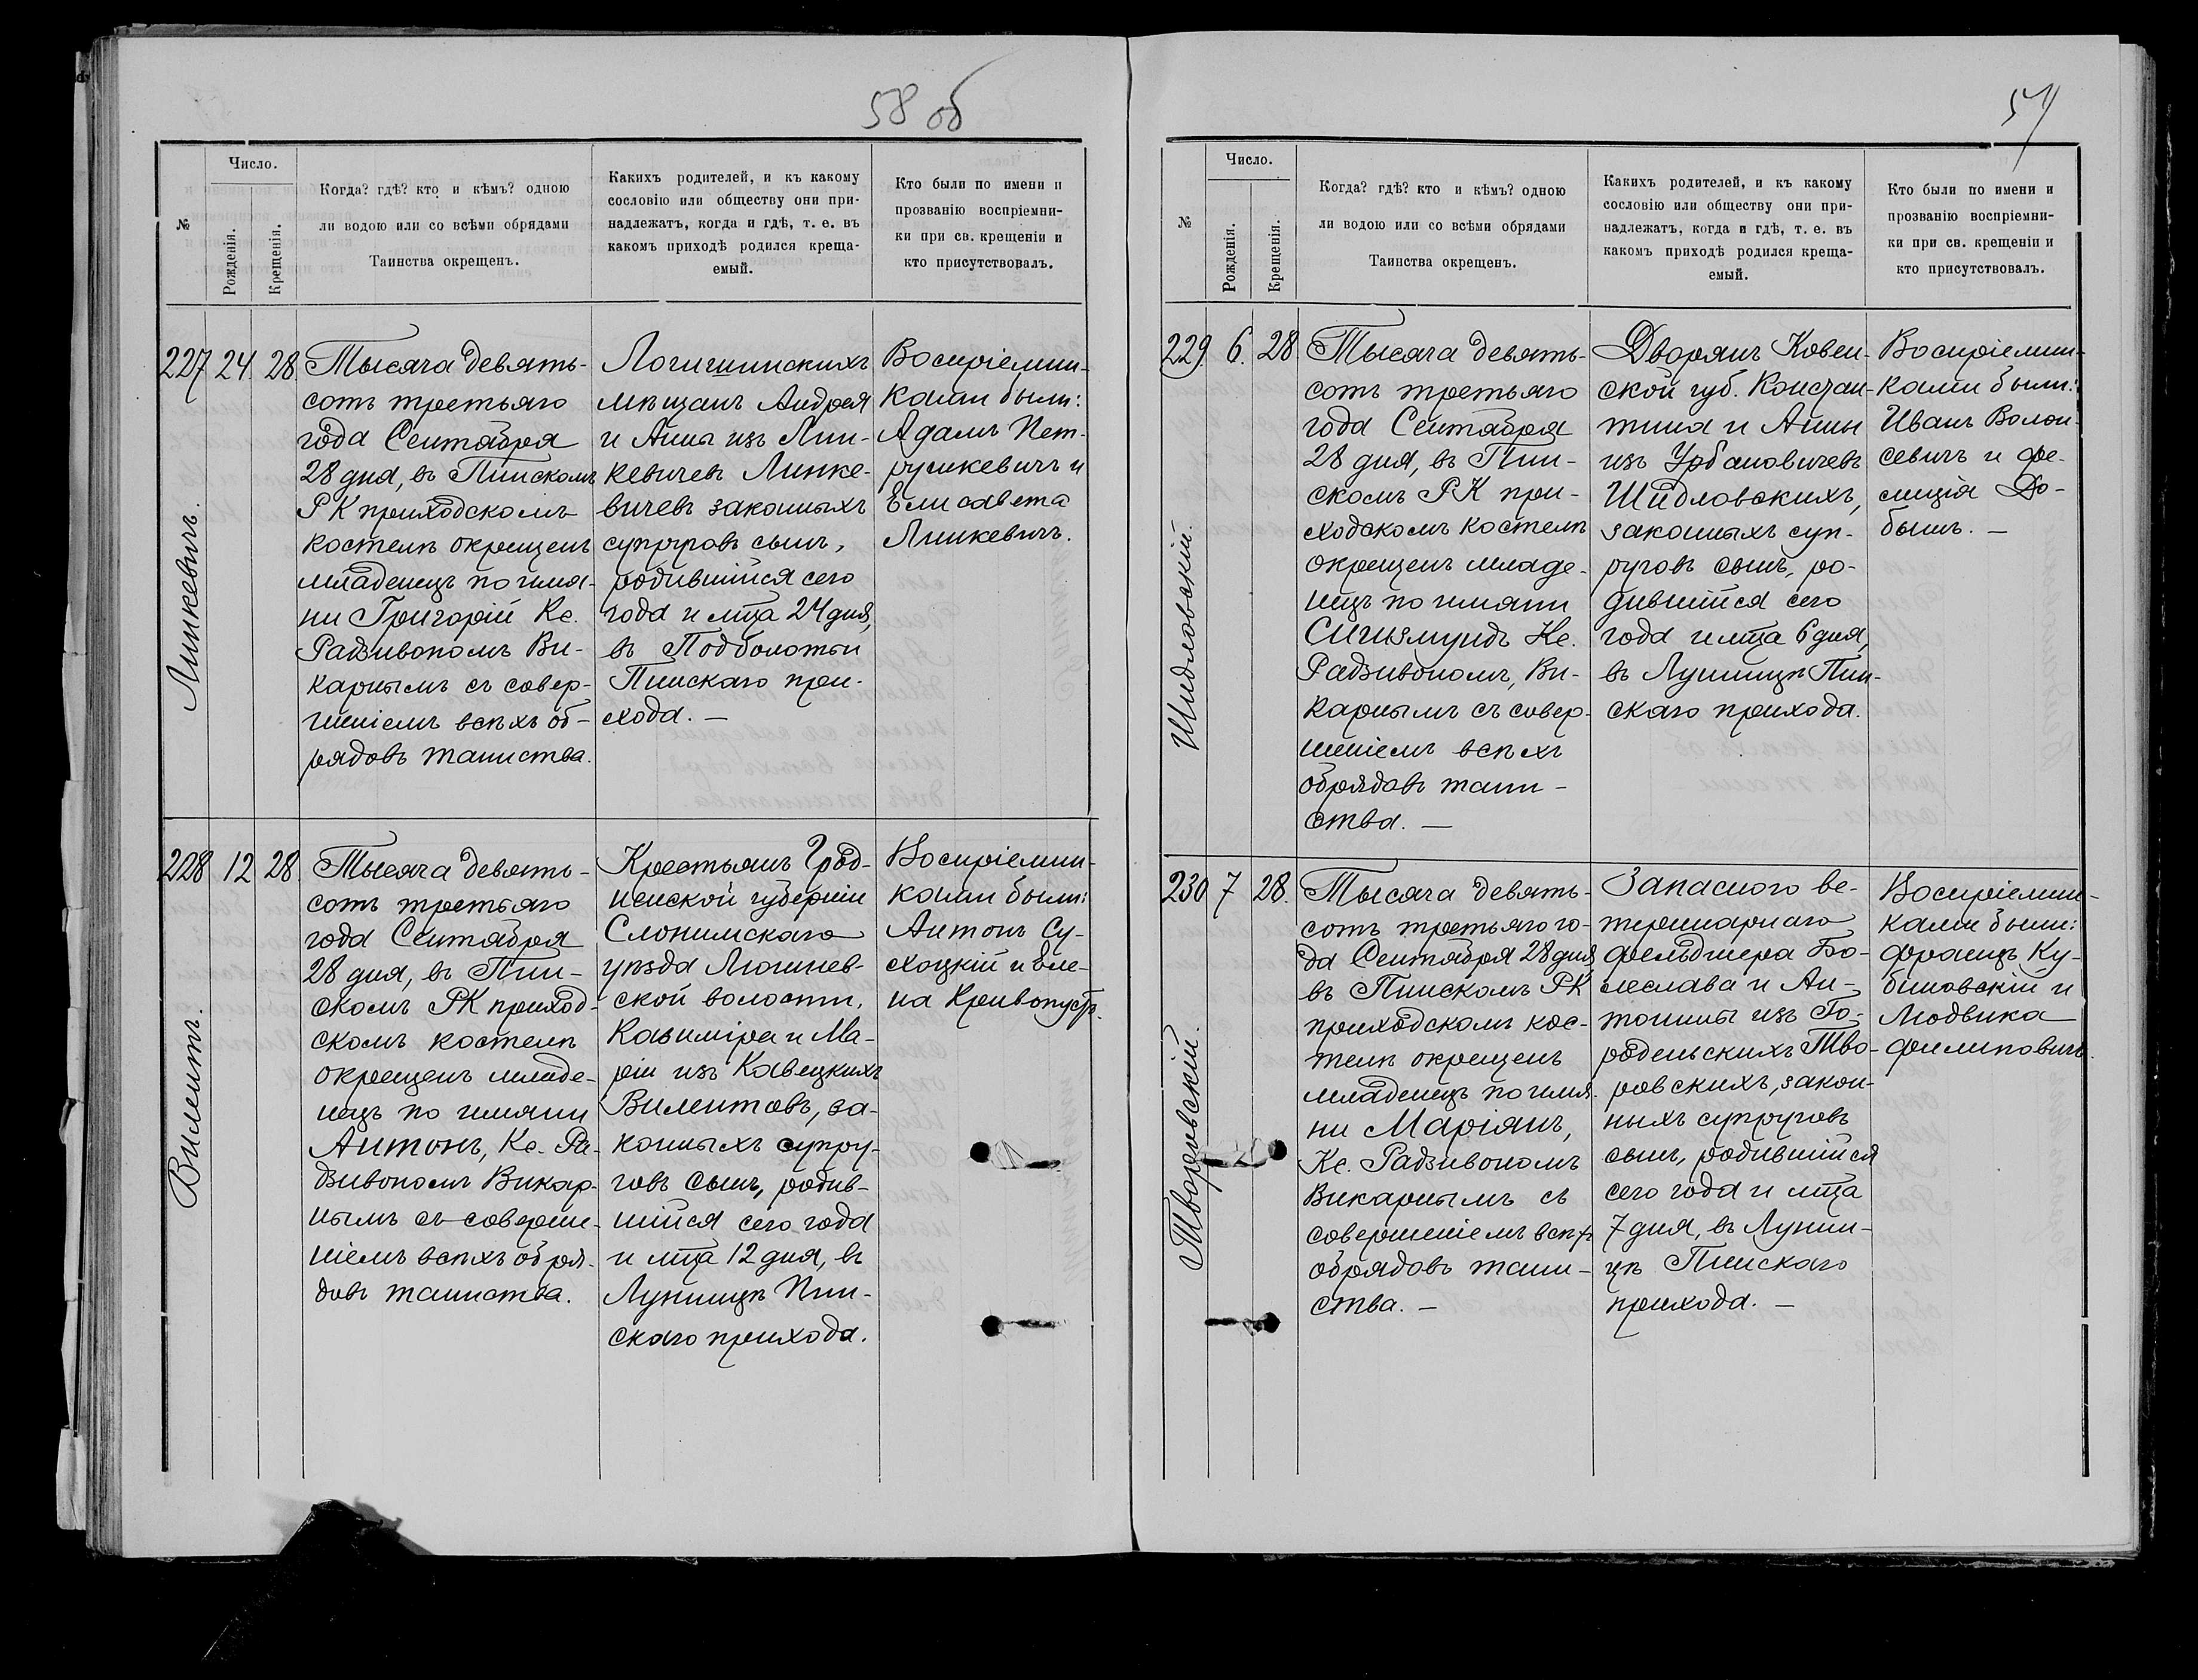 58 об
№
Число.
Рожденія.
Крещенія.
Когда? гдѣ? кто и кѣмъ? одною
ли водою или со всѣми обрядами
Таинства окрещенъ.
Какихъ родителей, и къ какому
сословію или обществу они при-
надлежатъ, когда и гдѣ, т. е. въ
какомъ приходѣ родился креща-
емый.
Кто были по имени и
прозванію воспріемни-
ки при св. крещеніи и
кто присутствовалъ.
227 24 28
Линкевичъ.
Тысяча девять-
сотъ третьяго
года Сентября
28 дня, въ Пинскомъ
РК приходскомъ
костелѣ окрещенъ
младенецъ по имя-
ни Григорій Кс.
Радзивономъ Ви-
карнымъ съ совер-
шеніемъ всѣхъ об-
рядовъ таинства.
Логишинскихъ
мѣщанъ Андрея
и Анны изъ Лин-
кевичевъ Линке-
вичевъ законныхъ
супруговъ сынъ,
родившійся сего
года и мца 24 дня,
въ Подболотьи
Пинскаго при-
хода. —
Воспріемни-
ками были:
Адамъ Пет-
рушкевичъ и
Елисавета
Линкевичъ.
228 12 28
Вилентъ.
Тысяча девять-
сотъ третьяго
года Сентября
28 дня, въ Пин-
скомъ РК приход-
скомъ костелѣ
окрещенъ младе-
нецъ по имяни
Антонъ, Кс. Ра-
дзивономъ Викар-
нымъ съ соверше-
ніемъ всѣхъ обря-
довъ таинства.
Крестьянъ Грод-
ненской губерніи
Слонимскаго
уѣзда Люшнев-
ской волости,
Казиміра и Ма-
ріи изъ Кавецкихъ
Вилентовъ, за-
конныхъ супру-
говъ сынъ, родив-
шійся сего года
и мца 12 дня, въ
Лунинцѣ Пин-
скаго прихода.
Воспріемни-
ками были:
Антонъ Су-
хоцкій и Еле-
на Кривопустъ.
57
№
Число.
Рожденія.
Крещенія.
Когда? гдѣ? кто и кѣмъ? одною
ли водою или со всѣми обрядами
Таинства окрещенъ.
Какихъ родителей, и къ какому
сословію или обществу они при-
надлежатъ, когда и гдѣ, т. е. въ
какомъ приходѣ родился креща-
емый.
Кто были по имени и
прозванію воспріемни-
ки при св. крещеніи и
кто присутствовалъ.
229. 6. 28.
Шидловскій.
Тысяча девять-
сотъ третьяго
года Сентября
28 дня, въ Пин-
скомъ РК при-
ходскомъ костелѣ
окрещенъ младе-
нецъ по имяни
Сигизмундъ Кс.
Радзивономъ, Ви-
карнымъ съ совер-
шеніемъ всѣхъ
обрядовъ таин-
ства. —
Дворянъ Ковен-
ской губ. Констан-
тина и Анны
изъ Урбановичевъ
Шидловскихъ,
законныхъ суп-
руговъ сынъ, ро-
дившійся сего
года и мца 6 дня,
въ Лунинцѣ Пин-
скаго прихода.
Воспріемни-
ками были:
Иванъ Волон-
севичъ и Фе-
лиція До-
бышъ. —
230 7 28.
Творовскій.
Тысяча девять-
сотъ третьяго го-
да Сентября 28 дня
въ Пинскомъ РК
приходскомъ кос-
телѣ окрещенъ
младенецъ по имя-
ни Маріянъ,
Кс. Радзивономъ
Викарнымъ съ
совершеніемъ всѣхъ
обрядовъ таин-
ства. —
Запасного ве-
теринарнаго
фельдшера Бо-
леслава и Ан-
тонины изъ Го-
родельскихъ Тво-
ровскихъ, закон-
ныхъ супруговъ
сынъ, родившійся
сего года и мца
7 дня, въ Лунин-
цѣ Пинскаго
прихода. —
Воспріемни-
ками были:
Францъ Ку-
биловскій и
Людвика
Филиповичъ.